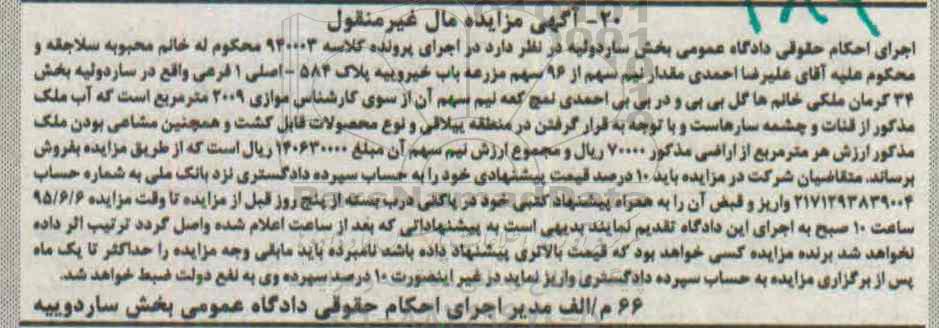 ۲۰- آگهی مزایده مال غیرمنقول
اجرای احکام حقوقی دادگاه عمومی بخش ساردوئیه در نظر دارد در اجرای پرونده کلاسه ۹۴۰۰۰۳ محکوم له خانم محبوبه سلاجقه و
محکوم علیه آقای علیرضا احمدی مقدار نیم سهم از ۹۶ سهم مزرعه باب خیروییه پلاک ۵۸۴ - اصلی ۱ فرعی واقع در ساردوئیه بخش
۳۴ کرمان ملکی خانم ها گل بی بی و در بی بی احمدی نمچ کمه نیم سهم آن از سوی کارشناس موازی ۲۰۰۹ مترمربع است که آب ملک
مذکور از قنات و چشمه سارهاست و با توجه به قرار گرفتن در منطقه ییلاقی و نوع محصولات قابل کشت و همچنین مشاعی بودن ملک
مذکور ارزش هر مترمربع از اراضی مذکور ۷۰۰۰۰ ریال و مجموع ارزش نیم سهم آن مبلغ ۱۴۰۶۳۰۰۰۰ ریال است که از طریق مزایده بفروش
برساند. متقاضیان شرکت در مزایده باید ۱۰ درصد قیمت پیشنهادی خود را به حساب سپرده دادگستری نزد بانک ملی به شماره حساب
۲۱۷۱۲۹۳۸۳۹۰۰۴ واریز و قبض آن را به همراه پیشنهاد کتبی خود در پاکتی درب بسته از پنج روز قبل از مزایده تا وقت مزایده ۹۵/۶/۶
ساعت ۱۰ صبح به اجرای این دادگاه تقدیم نمایند بدیهی است به پیشنهاداتی که بعد از ساعت اعلام شده واصل گردد ترتیب اثر داده
نخواهد شد برنده مزایده کسی خواهد بود که قیمت بالاتری پیشنهاد داده باشد نامبرده باید مابقی وجه مزایده را حداکثر تا یک ماه
پس از برگزاری مزایده به حساب سپرده دادگستری واریز نماید در غیر اینصورت ۱۰ درصد سپرده وی به نفع دولت ضبط خواهد شد.
۶۶ م/الف مدیر اجرای احکام حقوقی دادگاه عمومی بخش ساردوییه